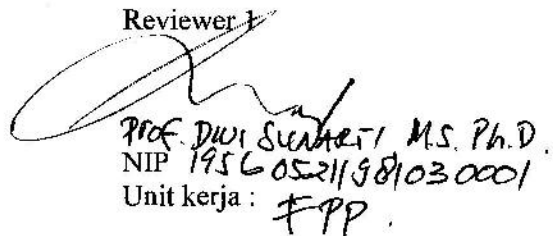 Reviewer 1
Prof. DWI SUNARTI M.S. Ph.D.
NIP 19560521198103 0001
Unit kerja : FPP.